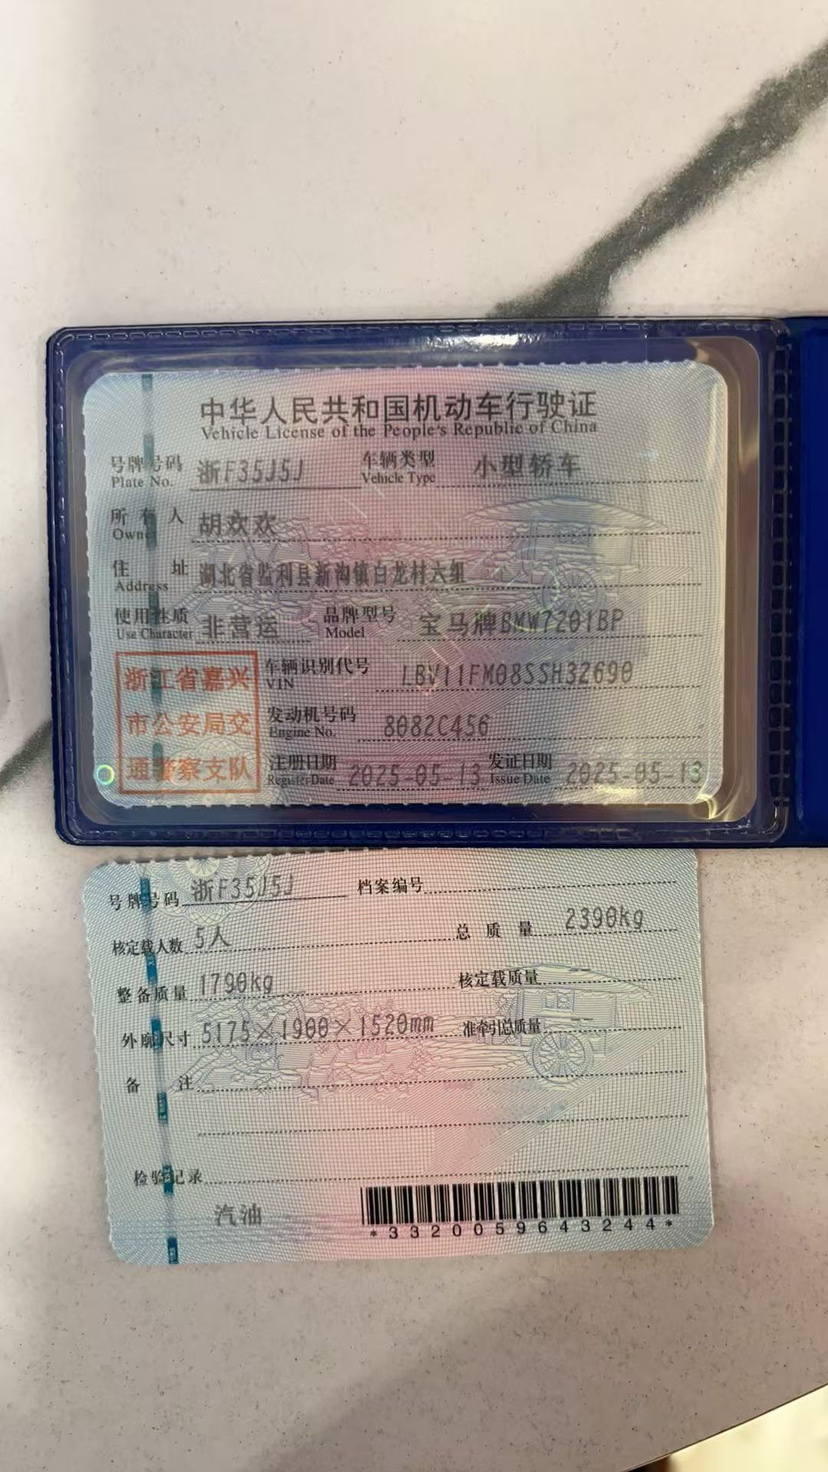 中华人民共和国机动车行驶证
Vehicle License of the People's Republic of China
号牌号码 浙F35J5J 车辆类型 小型轿车
Plate No. Vehicle Type
所有人 胡欢欢
Owner
住址 湖北省监利县新沟镇白龙村六组
Address
使用性质 非营运 品牌型号 宝马牌BMW7201BP
Use Character Model
浙江省嘉兴
市公安局交
通警察支队
车辆识别代号 LBV11FM08SSH32690
VIN
发动机号码 8082C456
Engine No.
注册日期 2025-05-13 发证日期 2025-05-13
Register Date Issue Date
号牌号码 浙F35J5J 档案编号
核定载人数 5人 总质量 2390kg
整备质量 1790kg 核定载质量 --
外廓尺寸 5175×1900×1520mm 准牵引总质量 --
备注
检验记录
汽油
*3320059643244*